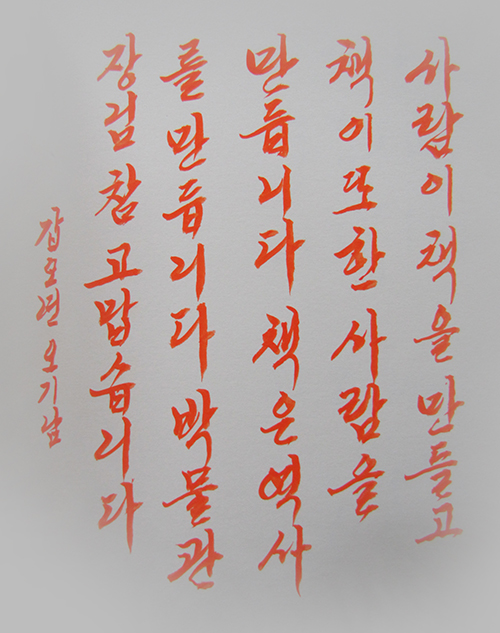 사람이책을만들고
책이또한사람을
만듭니다책은역사
를만듭니다박물관
장님참고맙습니다
갑오년오기남